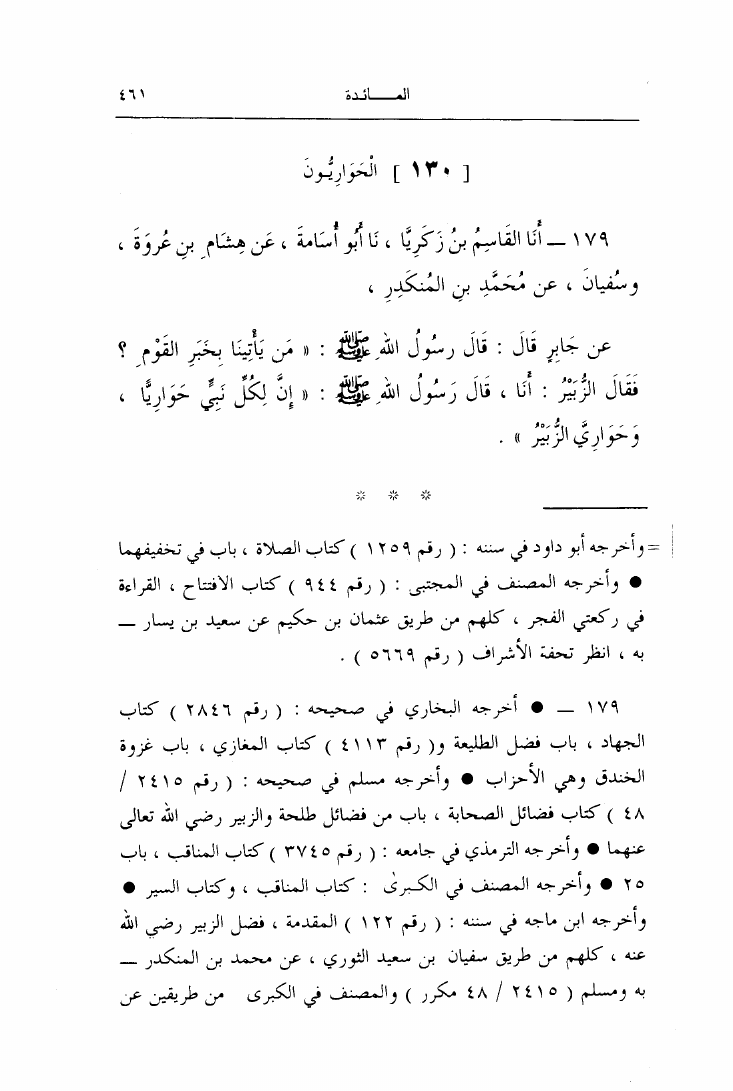 المـــائدة ٤٦١
[ ١٣٠ ] الْحَوَارِيُّونَ
١٧٩ ــ أَنَا القَاسِمُ بنُ زَكَرِيَّا ، نَا أَبُو أُسَامةَ ، عَن هِشَامِ بنِ عُروَةَ ،
وسُفيانَ ، عن مُحَمَّدِ بنِ المُنكَدِرِ ،
عن جَابِرٍ قَالَ : قَالَ رسُولُ اللهِ ﷺ : « مَن يَأْتِينَا بِخَبَرِ القَوْمِ ؟
فَقَالَ الزُّبَيْرُ : أَنَا ، قَالَ رَسُولُ اللهِ ﷺ : « إِنَّ لِكُلِّ نَبِيٍّ حَوَارِيًّا ،
وَحَوَارِيَّ الزُّبَيْرُ » .
* * *
= وأخرجه أبو داود في سننه : ( رقم ١٢٥٩ ) كتاب الصلاة ، باب في تخفيفهما
● وأخرجه المصنف في المجتبى : ( رقم ٩٤٤ ) كتاب الافتتاح ، القراءة
في ركعتي الفجر ، كلهم من طريق عثمان بن حكيم عن سعيد بن يسار ــ
به ، انظر تحفة الأشراف ( رقم ٥٦٦٩ ) .
١٧٩ ــ ● أخرجه البخاري في صحيحه : ( رقم ٢٨٤٦ ) كتاب
الجهاد ، باب فضل الطليعة و( رقم ٤١١٣ ) كتاب المغازي ، باب غزوة
الخندق وهي الأحزاب ● وأخرجه مسلم في صحيحه : ( رقم ٢٤١٥ /
٤٨ ) كتاب فضائل الصحابة ، باب من فضائل طلحة والزبير رضي الله تعالى
عنهما ● وأخرجه الترمذي في جامعه : ( رقم ٣٧٤٥ ) كتاب المناقب ، باب
٢٥ ● وأخرجه المصنف في الكبرى : كتاب المناقب ، وكتاب السير ●
وأخرجه ابن ماجه في سننه : ( رقم ١٢٢ ) المقدمة ، فضل الزبير رضي الله
عنه ، كلهم من طريق سفيان بن سعيد الثوري ، عن محمد بن المنكدر ــ
به ومسلم ( ٢٤١٥ / ٤٨ مكرر ) والمصنف في الكبرى من طريقين عن